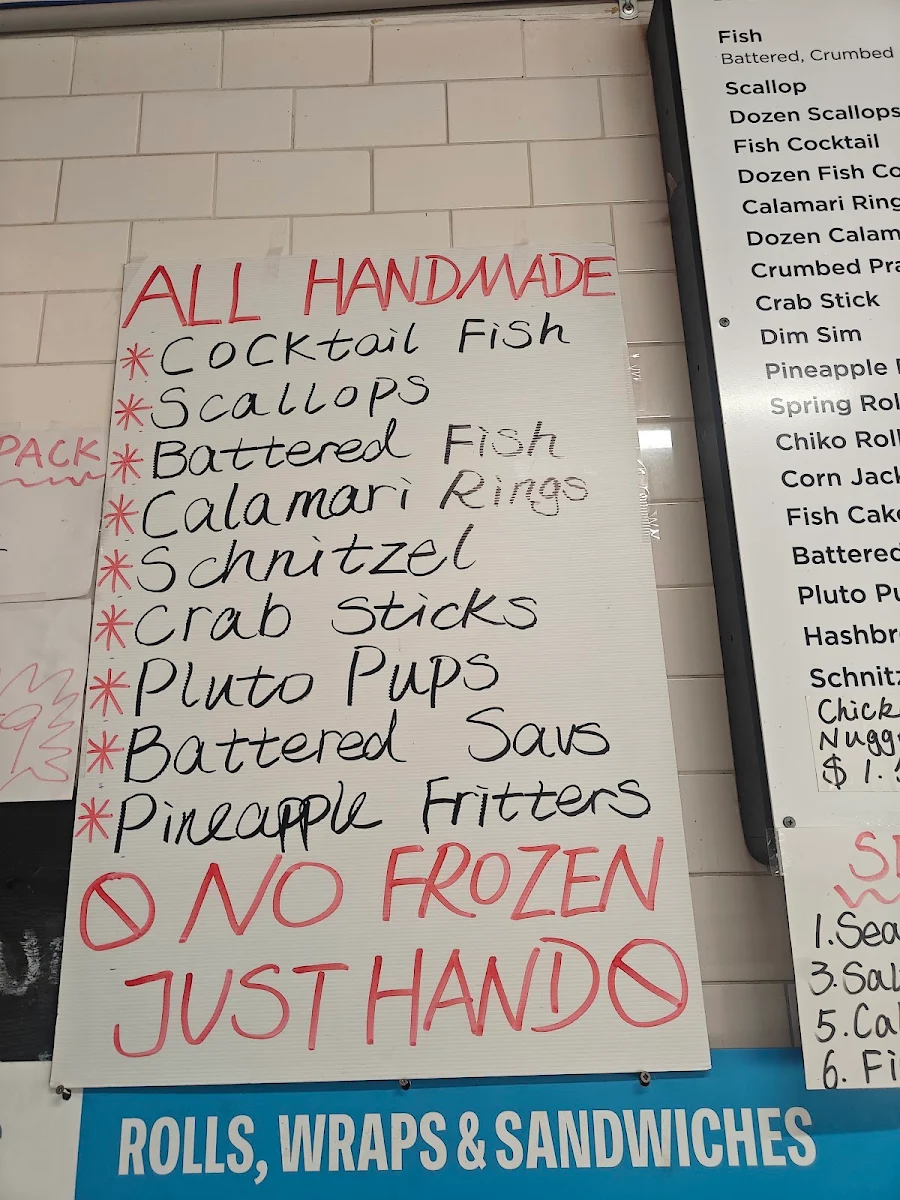 ALL HANDMADE
* Cocktail Fish
* Scallops
* Battered Fish
* Calamari Rings
* Schnitzel
* Crab Sticks
* Pluto Pups
* Battered Savs
* Pineapple Fritters
NO FROZEN
JUST HAND
PACK
Fish
Battered, Crumbed
Scallop
Dozen Scallops
Fish Cocktail
Dozen Fish
Calamari
Dozen
Crumbed
Crab Stick
Dim Sim
Pineapple
Spring
Chiko Roll
Corn
Fish
Battered
Pluto
$ 1.
1.
3.
5.
6.
ROLLS, WRAPS & SANDWICHES